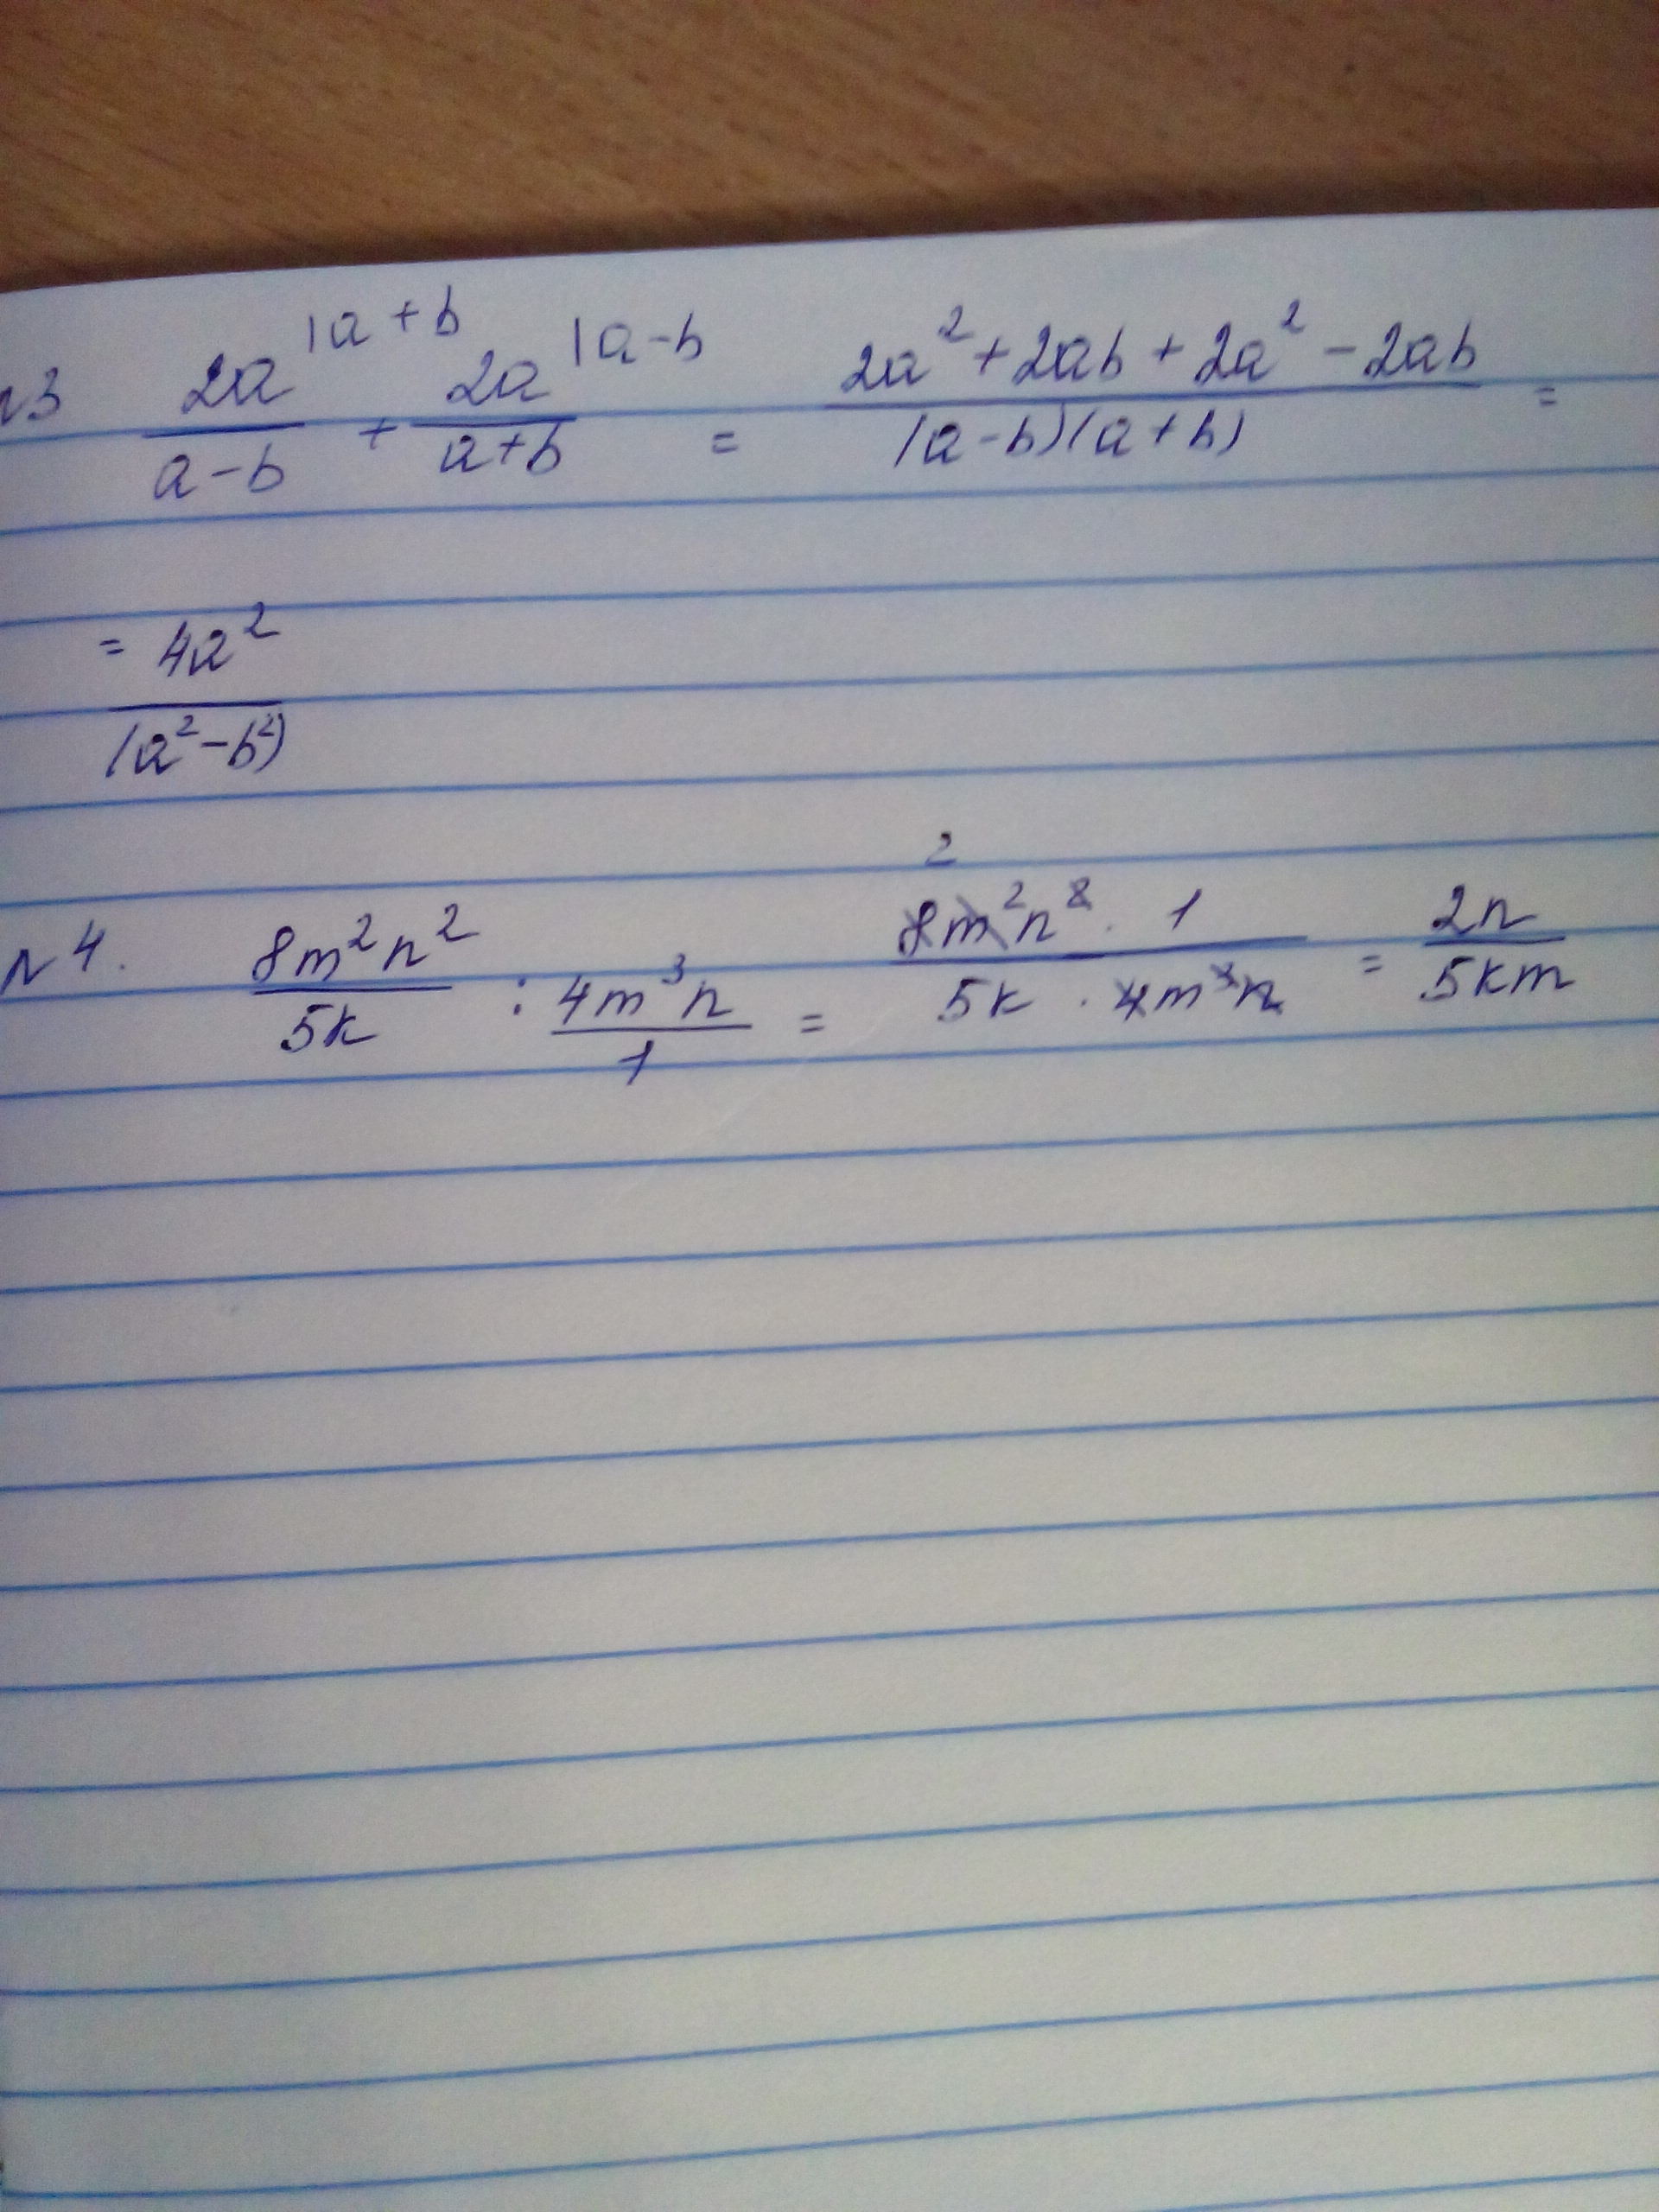 №3 \frac{2a^{|a+b}}{a-b} + \frac{2a^{|a-b}}{a+b} = \frac{2a^2+2ab+2a^2-2ab}{(a-b)(a+b)} =
= \frac{4a^2}{(a^2-b^2)}
№4. \frac{8m^2n^2}{5k} : \frac{4m^3n}{1} = \frac{\overset{2}{8}m^2n^2 \cdot 1}{5k \cdot 4m^3n} = \frac{2n}{5km}